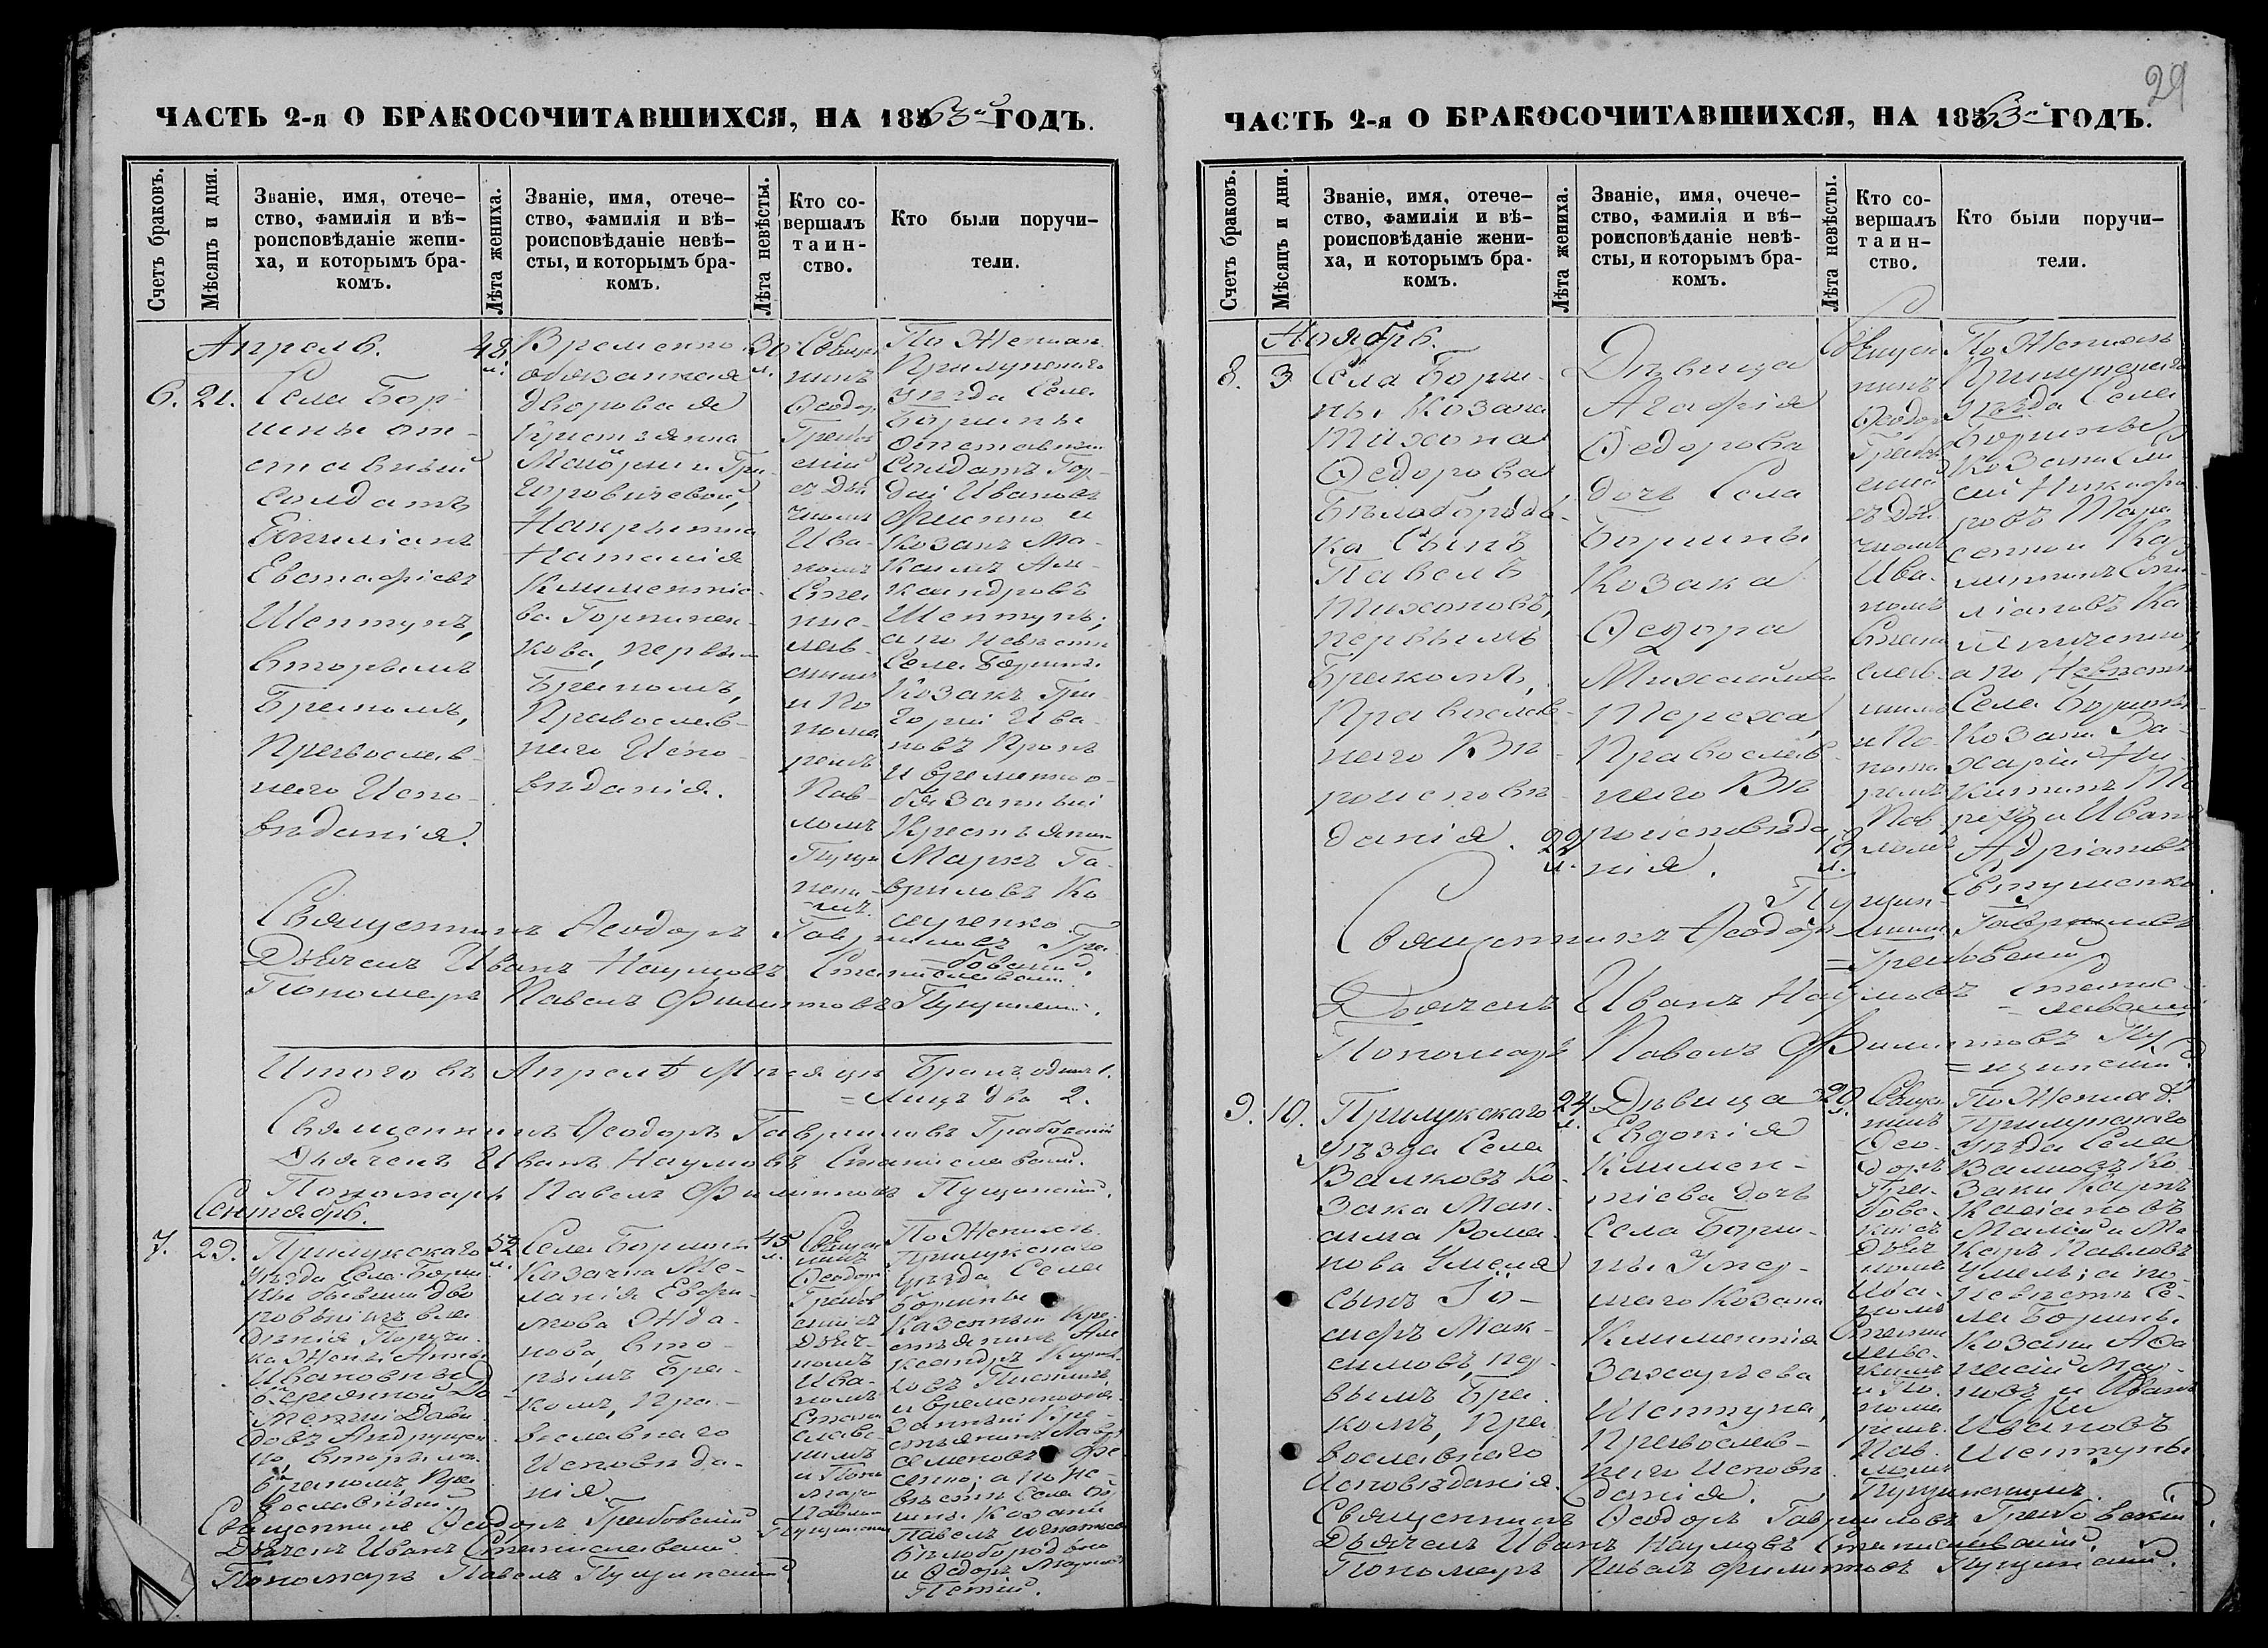 29
ЧАСТЬ 2-я О БРАКОСОЧИТАВШИХСЯ, НА 1863й ГОДЪ.
Счетъ браковъ.
Мѣсяцъ и дни.
Званіе, имя, отече-
ство, фамилія и вѣ-
роисповѣданіе жени-
ха, и которымъ бра-
комъ.
Лѣта жениха.
Званіе, имя, отече-
ство, фамилія и вѣ-
роисповѣданіе невѣ-
сты, и которымъ бра-
комъ.
Лѣта невѣсты.
Кто со-
вершалъ
таин-
ство.
Кто были поручи-
тели.
Апрель.
6. 21.
Села Бор-
шны от-
ставный
Солдатъ
Емиліанъ
Евстафіевъ
Шептунъ,
вторымъ
Бракомъ,
Православ-
наго Испо-
вѣданія.
48
л.
Временно
обязанная
дворовая
Крестьянка
Наталія
Климентіе-
ва
первым
Бракомъ,
Православ-
наго Испо-
вѣданія.
30
л.
Священ
никъ
Ѳеодоръ
Грабов
скій
съ Дья
чкомъ
Ива-
номъ
Стани
слав-
скимъ
и По
нома
ремъ
Пав-
ломъ
По Жених
Прилукскаго
уѣзда Села
Боршны
Отставный
Солдатъ
Ивановъ
и
Козакъ Ма-
ксимъ Але-
ксандровъ
Шептунъ;
а по Невѣстѣ
Села Боршны
Козакъ Гри-
горій Ива-
новъ
и временно о-
бязанный
Крестьянинъ
Маркъ Га-
вриловъ
Священникъ Ѳеодоръ Гавриловъ Грабовскій.
Дьячекъ Иванъ Наумовъ Станиславскій.
Пономарь Павелъ Филиповъ Пущинскій.
Итого въ Апрелѣ Мѣсяцѣ Бракъ одинъ 1.
= Лицъ два 2.
Священникъ Ѳеодоръ Гавриловъ Грабовскій
Дьячекъ Иванъ Наумовъ Станиславскій.
Пономарь Павелъ Филиповъ Пущинскій.
Сентябрь.
7. 29.
Прилукскаго
уѣзда Села Борш
ны бывший дво
ровый
Поручи-
ка Жены Анны
Ивановны
Дави-
довъ
Вторымъ
Бракомъ, Пра
вославный.
52
л.
Села Боршны
Козачка Ме-
ланія
Жда-
нова, вто-
рымъ Бра-
комъ, Пра-
вославнаго
Исповѣда-
нія
45
л.
Священ
никъ
Ѳеодоръ
Грабов
скій съ
Дьяч-
комъ
Ива-
номъ
Стани
слав-
скимъ
и Поно
маремъ
Павломъ
Пущинскимъ
По Женихѣ
Прилукскаго
уѣзда Села
Боршны
Казенный Кре-
стьянинъ Але
ксандръ
и временнообя
занный Кре-
стьянинъ
Семеновъ
а по Не-
вѣстѣ Села Бо
ршны Козаки
Павелъ
и Ѳедоръ
Священникъ Ѳеодоръ Грабовскій
Дьячекъ Иванъ Станиславскій.
Пономарь Павелъ Пущинскій.
ЧАСТЬ 2-я О БРАКОСОЧИТАВШИХСЯ, НА 1863й ГОДЪ.
Счетъ браковъ.
Мѣсяцъ и дни.
Званіе, имя, отече-
ство, фамилія и вѣ-
роисповѣданіе жени-
ха, и которымъ бра-
комъ.
Лѣта жениха.
Званіе, имя, очече-
ство, фамилія и вѣ-
роисповѣданіе невѣ-
сты, и которымъ бра-
комъ.
Лѣта невѣсты.
Кто со-
вершалъ
таин-
ство.
Кто были поручи-
тели.
Ноябрь.
8. 3
Села Борш-
ны Козака
Тихона
Ѳедорова
Бѣлобородь-
ка Сынъ
Павелъ
Тихоновъ,
первымъ
Бракомъ,
Православ-
наго Вѣ-
роисповѣ-
данія.
22
л.
Дѣвица
Агафія
Ѳедорова
дочь Села
Боршны
Козака
Ѳедора
Михайлова
Тереха,
Православ-
наго Вѣ
роисповѣда
нія.
18
л.
Священ
никъ
Ѳеодоръ
Грабов
скій
съ Дья
чкомъ
Ива-
номъ
Стани
слав-
скимъ
и По-
нома
ремъ
Пав-
ломъ
Пущин-
скимъ
По Женихѣ
Прилукскаго
уѣзда Села
Боршны
Козаки
Никифо
ровъ Тара
сенко и
а по Невѣстѣ
Села Боршны
Козаки За-
харій Ни-
китинъ Те
рехъ и Иванъ
Адріановъ
Евтушенко.
Священникъ Ѳеодоръ Гавриловъ
= Грабовскій
Дьячекъ Иванъ Наумовъ Станис-
= лавскій
Пономарь Павелъ Филиповъ Пу-
= щинскій.
9. 10.
Прилукскаго
уѣзда Села
Валковъ Ко-
зака Мак-
сима Рома-
нова Чмеля
сынъ Іо-
сифъ Мак-
симовъ, пер-
вымъ Бра-
комъ, Пра-
вославнаго
Исповѣданія.
24
л.
Дѣвица
Евдокія
Климен-
тіева дочь
Села Борш-
ны Умер-
шаго Козака
Климентія
Захарьева
Шептуна,
Православ-
наго Исповѣ
данія.
20
л.
Священ
никъ
Ѳео-
доръ
Гра-
бовс-
кій съ
Дьяч
комъ
Ива-
номъ
Стани
славс-
кимъ
и По-
нома
ремъ
Пав-
ломъ
Пущинскимъ.
По Женихѣ
Прилукскаго
уѣзда Села
Валковъ Ко-
заки Карпъ
Касіановъ
и Ма-
каръ Павловъ
Чмель; а по
Невѣстѣ Се-
ла Боршны
Козаки
и Иванъ
Ивановъ
Шептуны.
Священникъ Ѳеодоръ Гавриловъ Грабовскій
Дьячекъ Иванъ Наумовъ Станиславскій.
Пономарь Павелъ Филиповъ Пущинскій.